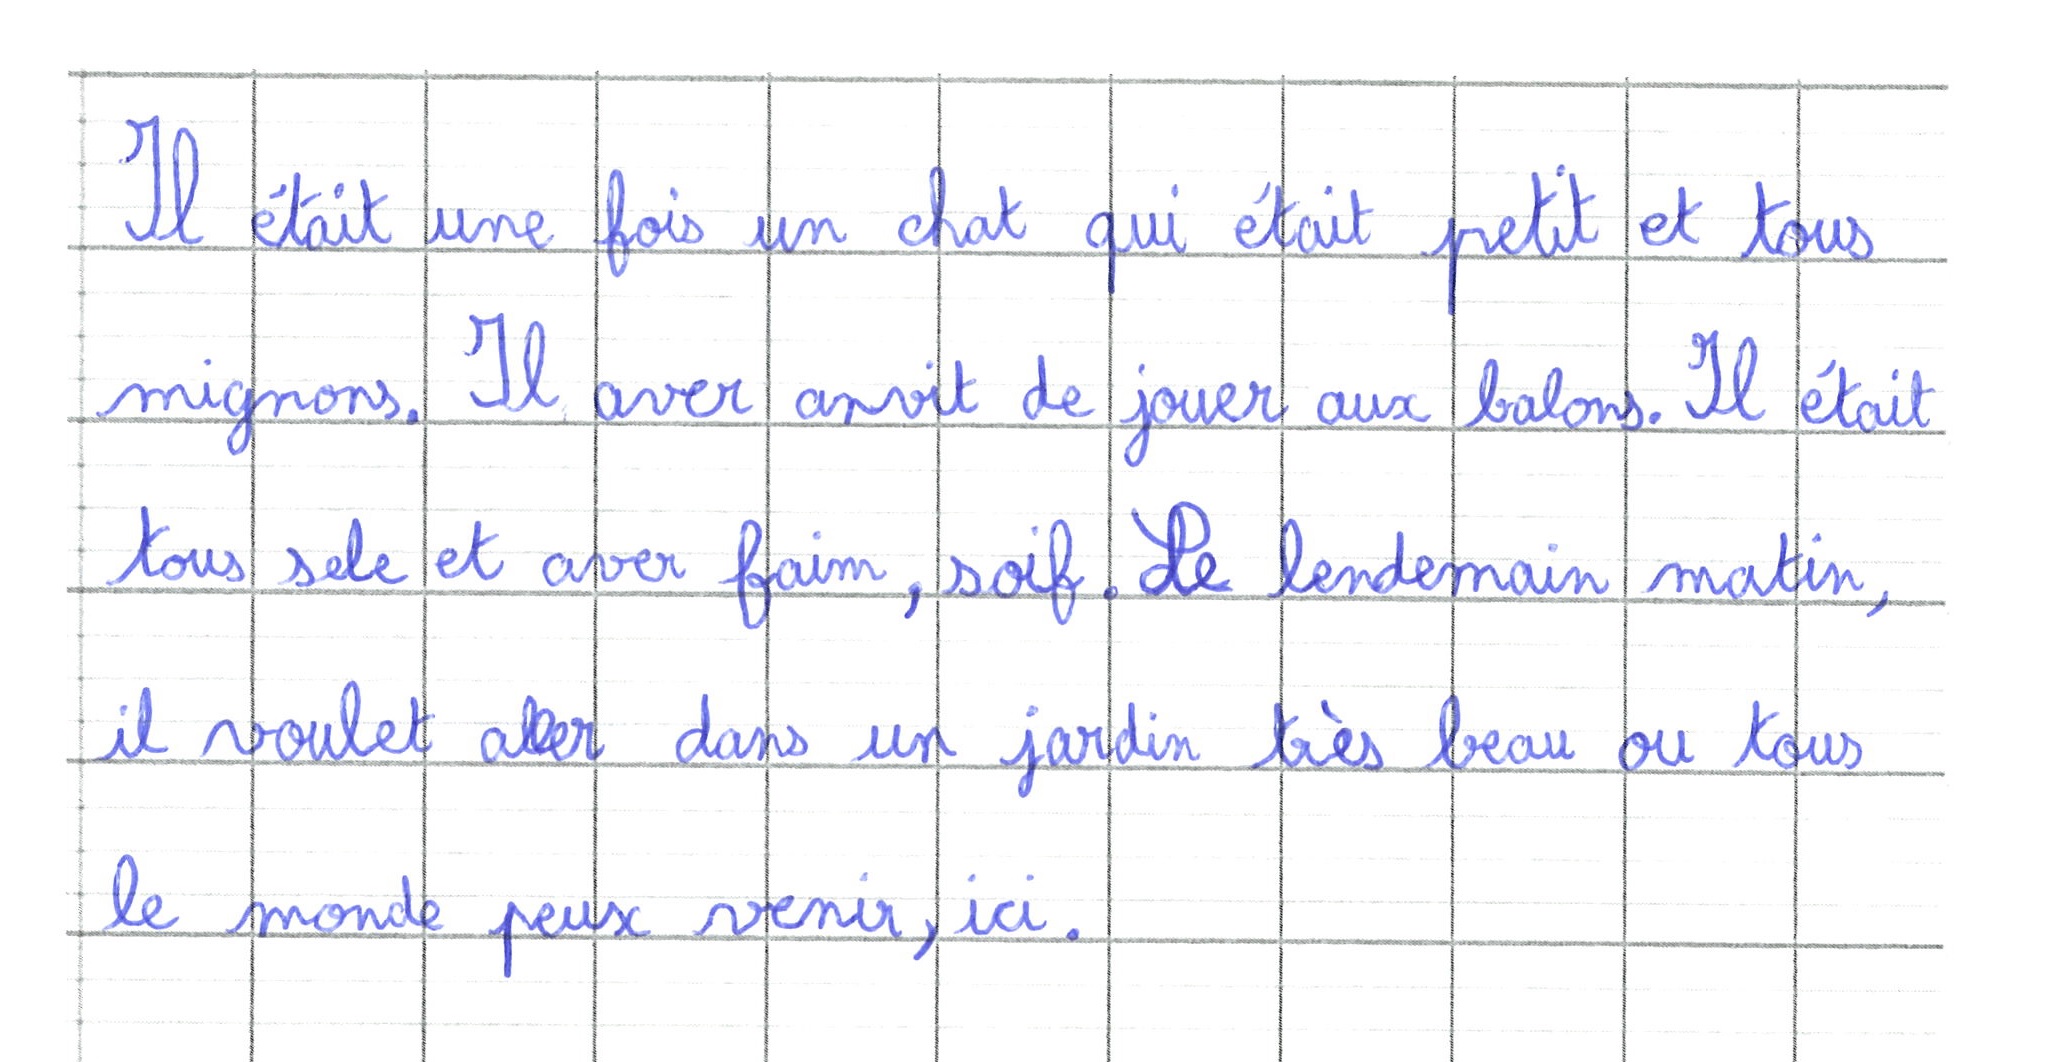 Il était une fois un chat qui était petit et tous
mignons. Il aver anvit de jouer aux balons. Il était
tous sele et aver faim, soif. Le lendemain matin,
il voulet aller dans un jardin très beau ou tous
le monde peux venir, ici.